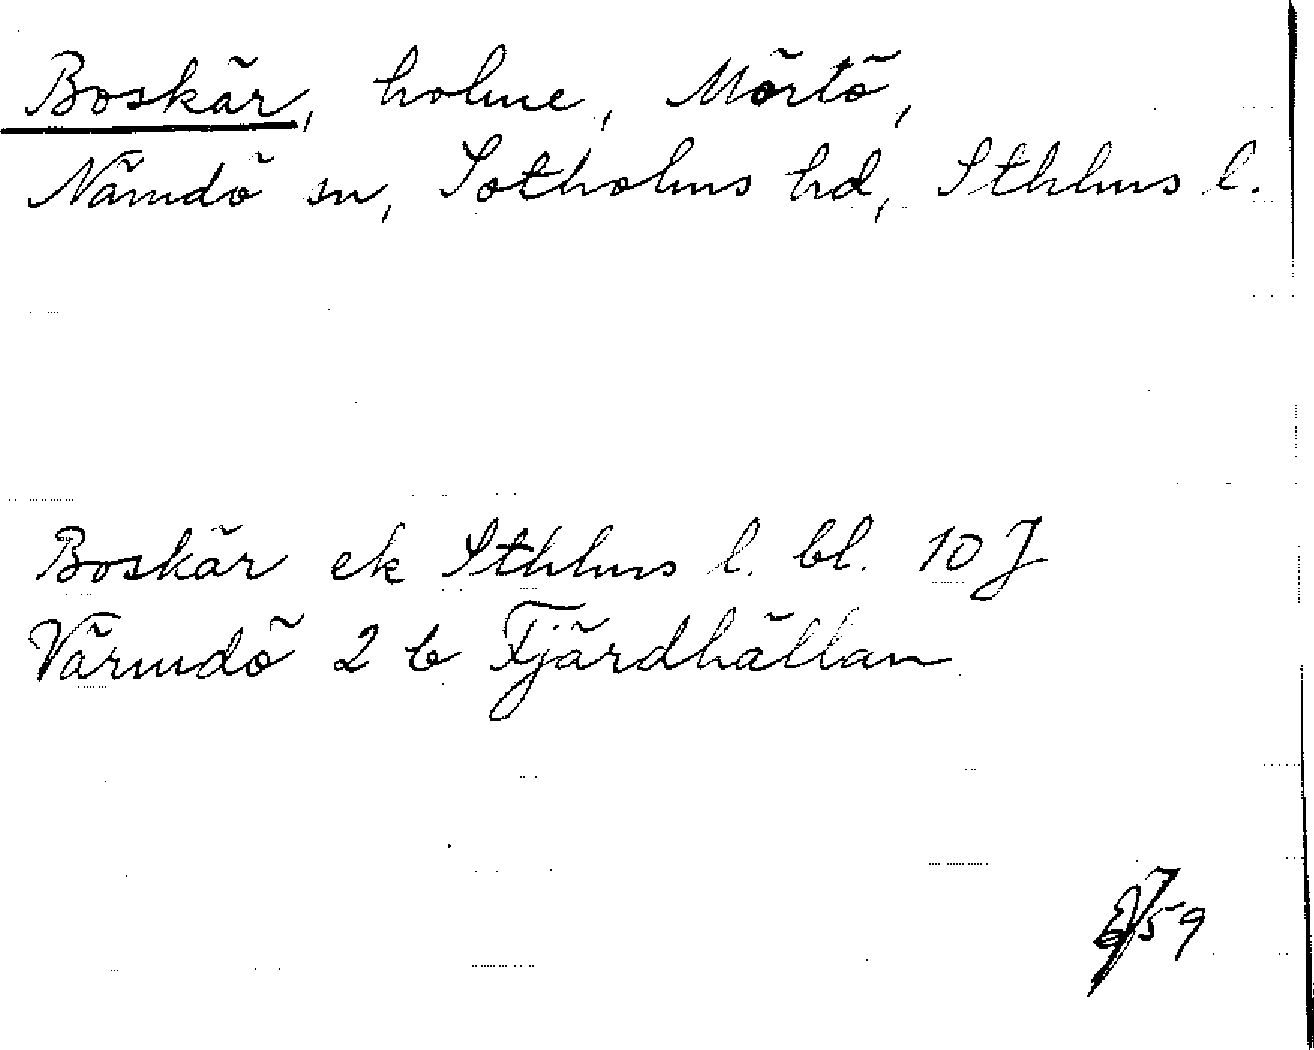 Boskär, holme, Mörtö,
Nämdö sn, Sotholms hd, Sthlms l.
Boskär ek Sthlms l. bl. 10 J
Värmdö 2 b Fjärdhällan
59